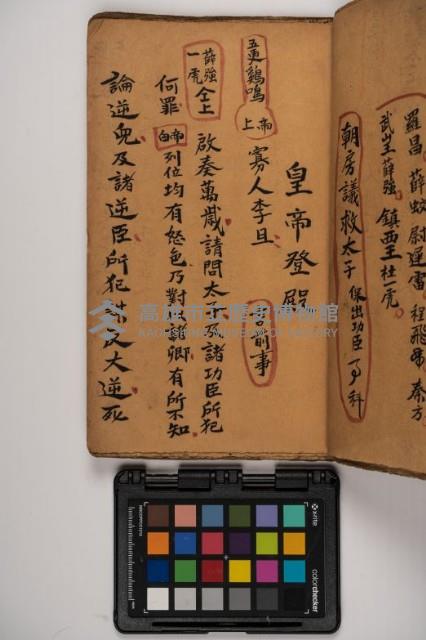 羅昌 薛蛟 尉遲雷 程飛虎 秦方
武王 薛強 鎮西王 杜一虎
朝房議救太子 保出功臣
皇帝登殿
五更鷄鳴 帝上 寡人李旦
前事
薛強 一虎 仝上 啟奏萬歲請問太 諸功臣所犯
何罪 帝白 列位均有怒色乃對 卿有所不知
論逆兒及諸逆臣所犯 大逆死
高雄市立歷史博物館
KAOHSIUNG MUSEUM OF HISTORY
x-rite
colorchecker